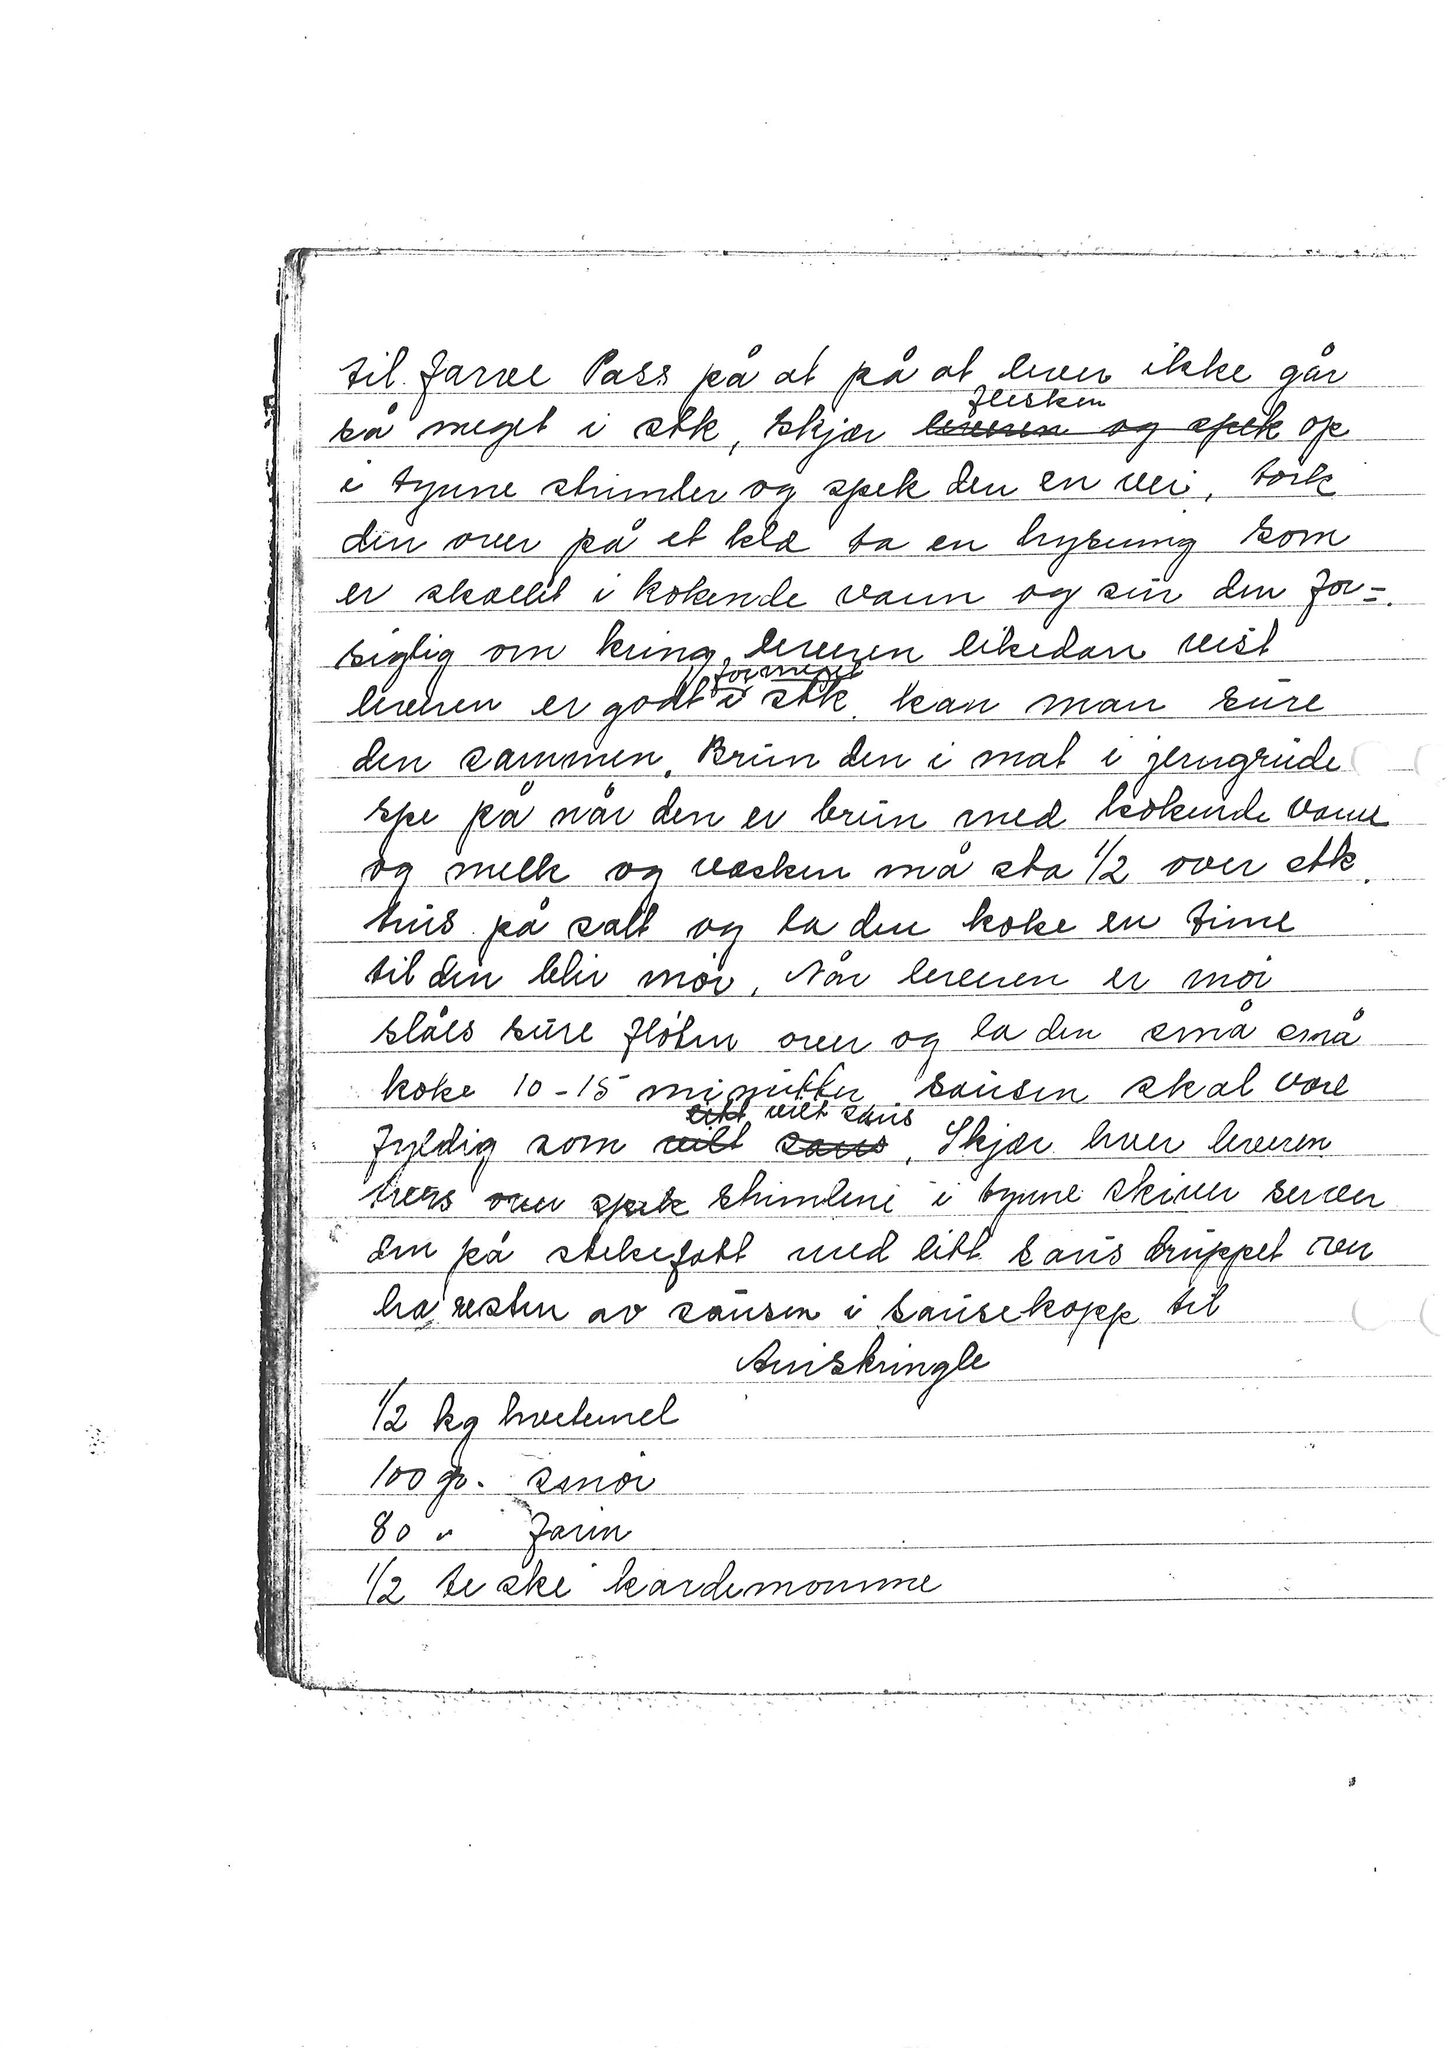 til farve Pass på at på at lever ikke går
flesken
så meget i stk, skjær leveren og spek op
i tynne strimler og spek den en vei, tørk
den over på et klæ ta en hysing som
er skollet i kokende vann og sur den for=
sigtig om kring leveren likedan vist
for meget
leveren er godt i stk. kan man sure
den sammen. Brun den i mat i jerngrude
spe på når den er brun med kokende vann
og melk og vesken må sta 1/2 over stk.
hus på salt og la den koke en time
til den blir mør. Når leveren er mør
slåes sure fløten over og la den små små
koke 10-15 minutter sausen skal være
litt vilt saus
fyldig som vilt saus. Skjær hver leveren
tvers over spek strimlene i tynne skiver server
den på stekefatt med litt saus druppet over
ha resten av sausen i sausekopp til
Aniskringle
1/2 kg hvetemel
100 gr. smør
80 " farin
1/2 te ske kardemomme